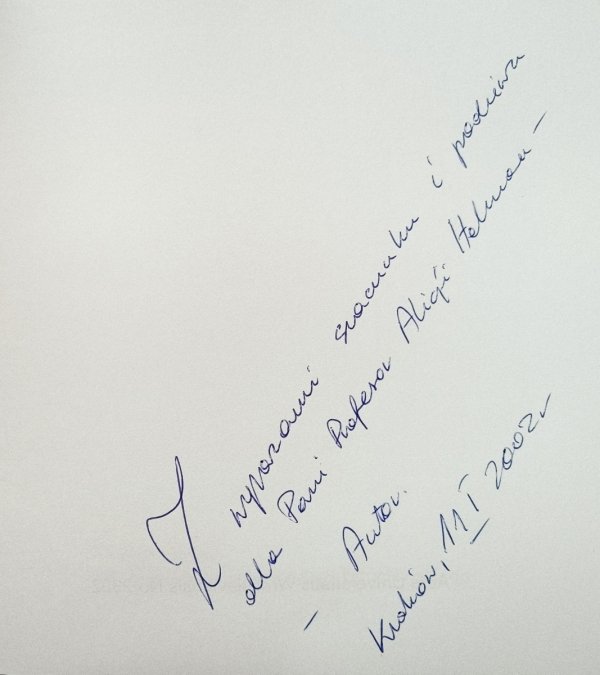 Z wyrazami szacunku i podziwu
dla Pani Profesor Alicji Helman –
– Autor.
Kraków, 11 I 2002 r.